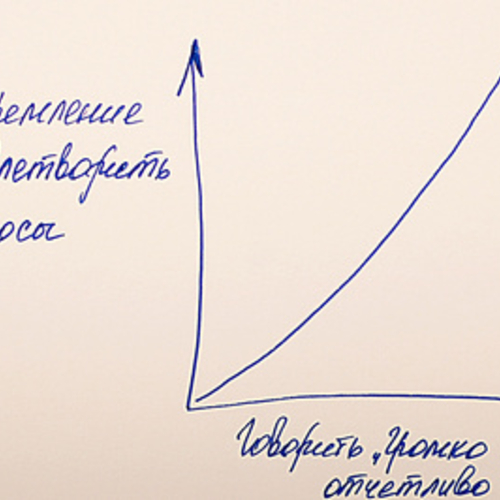 емление
летворить
осы
Говорить „громко
отчетливо